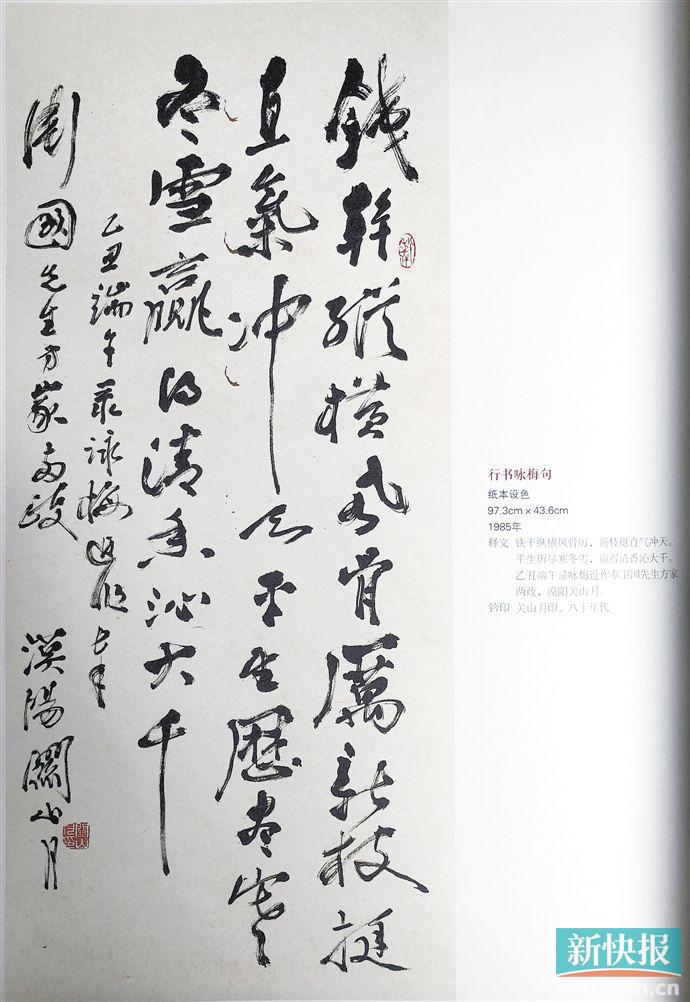 鐵幹縱橫風骨厲新枝挺
直氣冲天平生歷盡寒
冬雪贏得清香沁大千
乙丑端午錄詠梅近作奉
衛國先生方家兩政 漠陽關山月
行书咏梅句
纸本设色
97.3cm×43.6cm
1985年
释文 铁干纵横风骨历，新枝挺直气冲天。
平生历尽寒冬雪，赢得清香沁大千。
乙丑端午录咏梅近作奉卫国先生方家
两政，漠阳关山月。
钤印 关山月印、八十年代
新快报